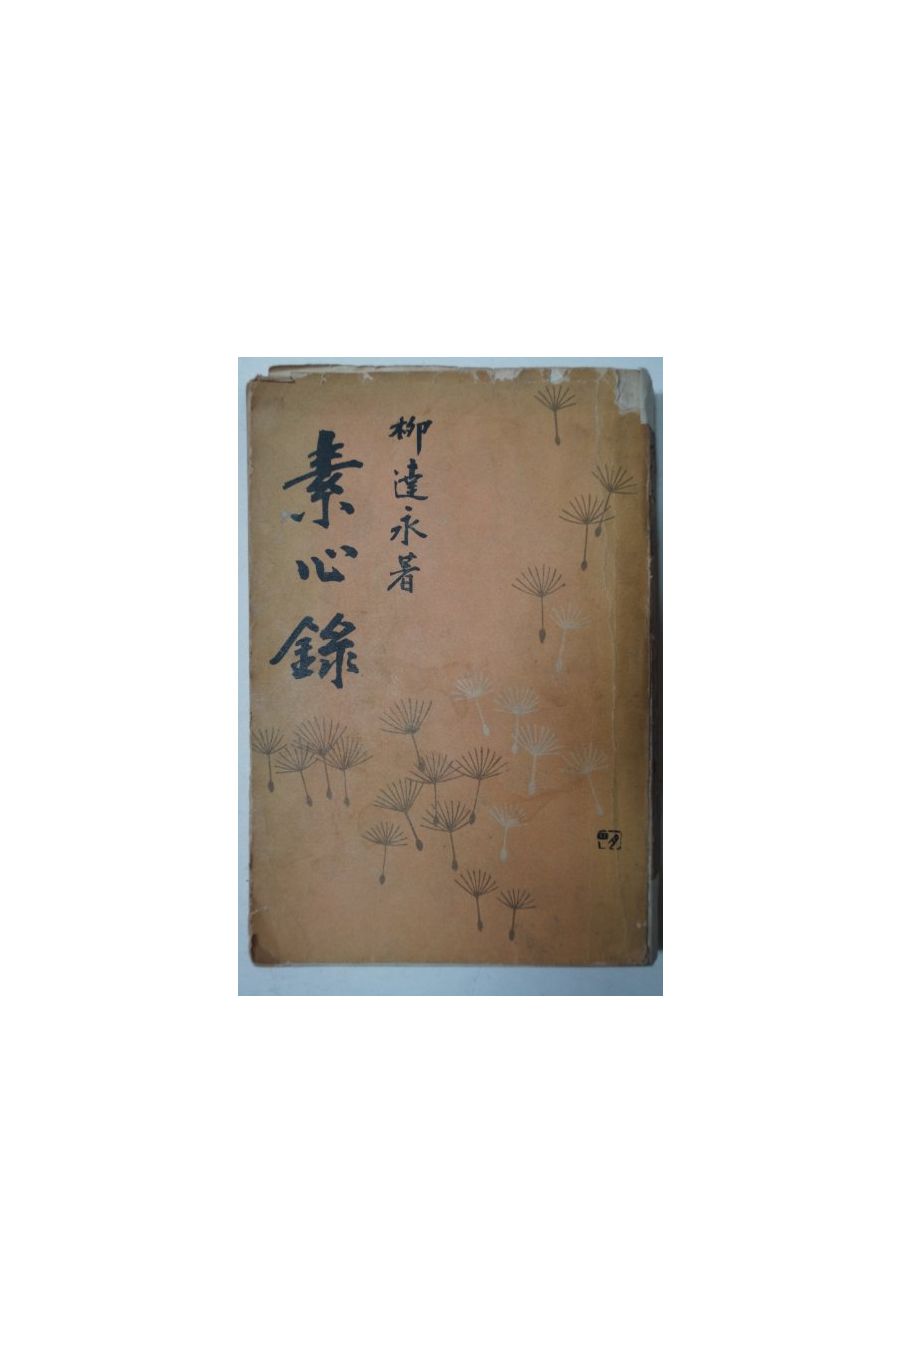 素心錄
柳達永著